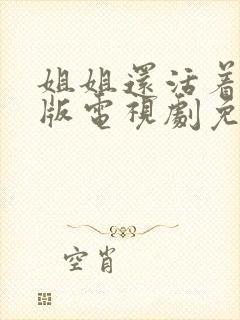 姐姐還活着
版電視劇免
空肖